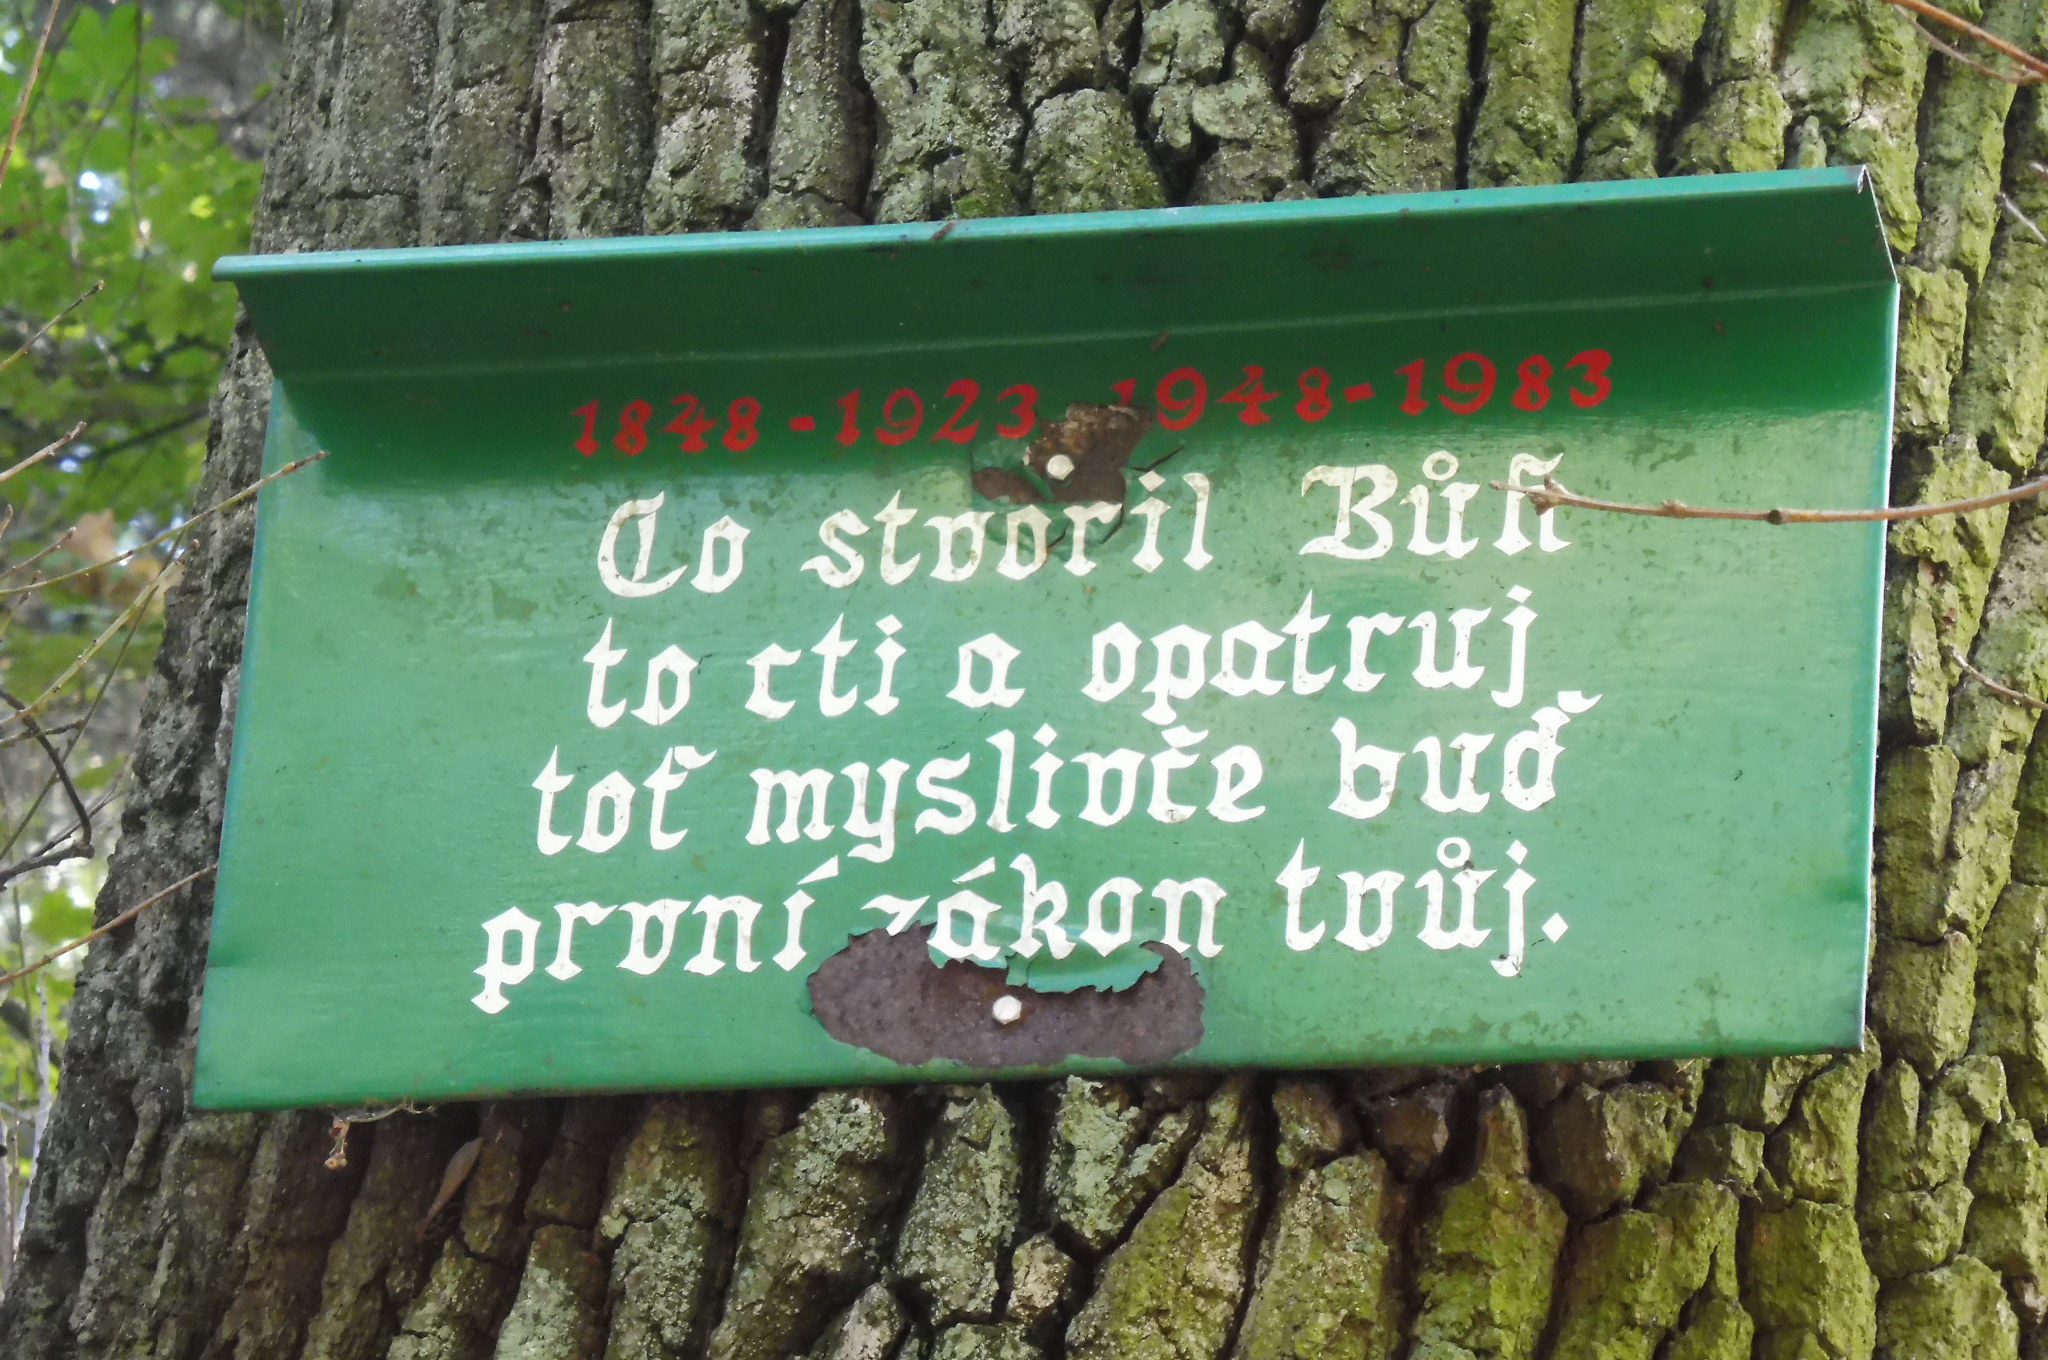 1848 - 1923 1948 - 1983
Co stvoril Bůh
to cti a opatruj
toť myslivče buď
první zákon tvůj.